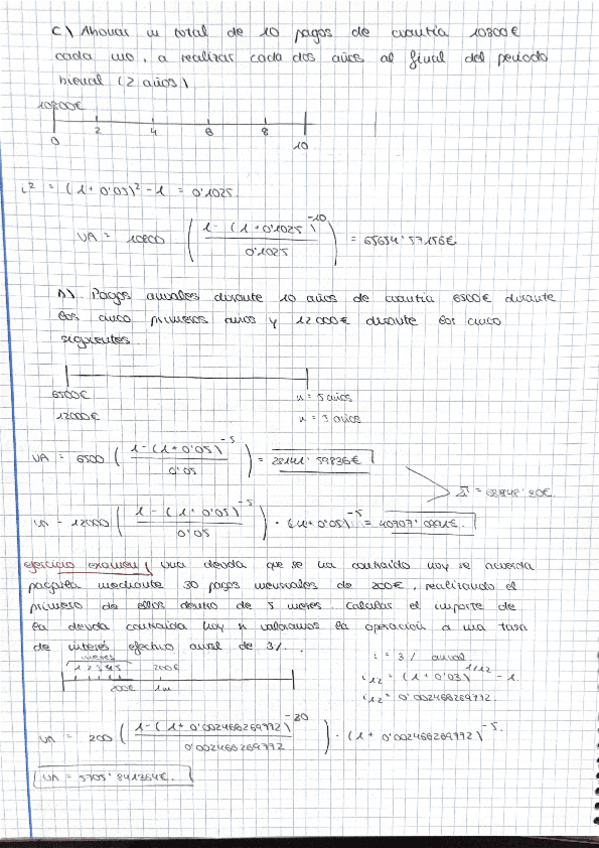 c) Ahorrar un total de 10 pagos de cuantía 10800€
cada uno, a realizar cada dos años al final del periodo
bienal (2 años)
10800€
0 2 4 6 8 10
i² = (1+0'05)² - 1 = 0'1025
VA = 10800 ( 1-(1+0'1025)^-10 / 0'1025 ) = 65654'57156€
D) Pagos anuales durante 10 años de cuantía 6500€ durante
los cinco primeros años y 12000€ durante los cinco
siguientes
6500€ n = 5 años
12000€ n = 5 años
VA = 6500 ( 1-(1+0'05)^-5 / 0'05 ) = 28141'59836€
Σ = 68848'20€
VA = 12000 ( 1-(1+0'05)^-5 / 0'05 ) · (1+0'05)^-5 = 40707'0001€.
ejercicio examen) Una deuda que se ha contraído hoy se acuerda
pagarla mediante 30 pagos mensuales de 200€, realizando el
primero de ellos dentro de 5 meses. Calcular el importe de
la deuda contraída hoy si valoramos la operación a una tasa
de interés efectivo anual de 3%.
meses
1 2 3 4 5 200€
200€ 1m
i = 3% anual
i12 = (1+0'03)^1/12 - 1
i12 = 0'002466269772
VA = 200 ( 1-(1+0'002466269772)^-30 / 0'002466269772 ) · (1+0'002466269772)^-5
VA = 5705'841364€.